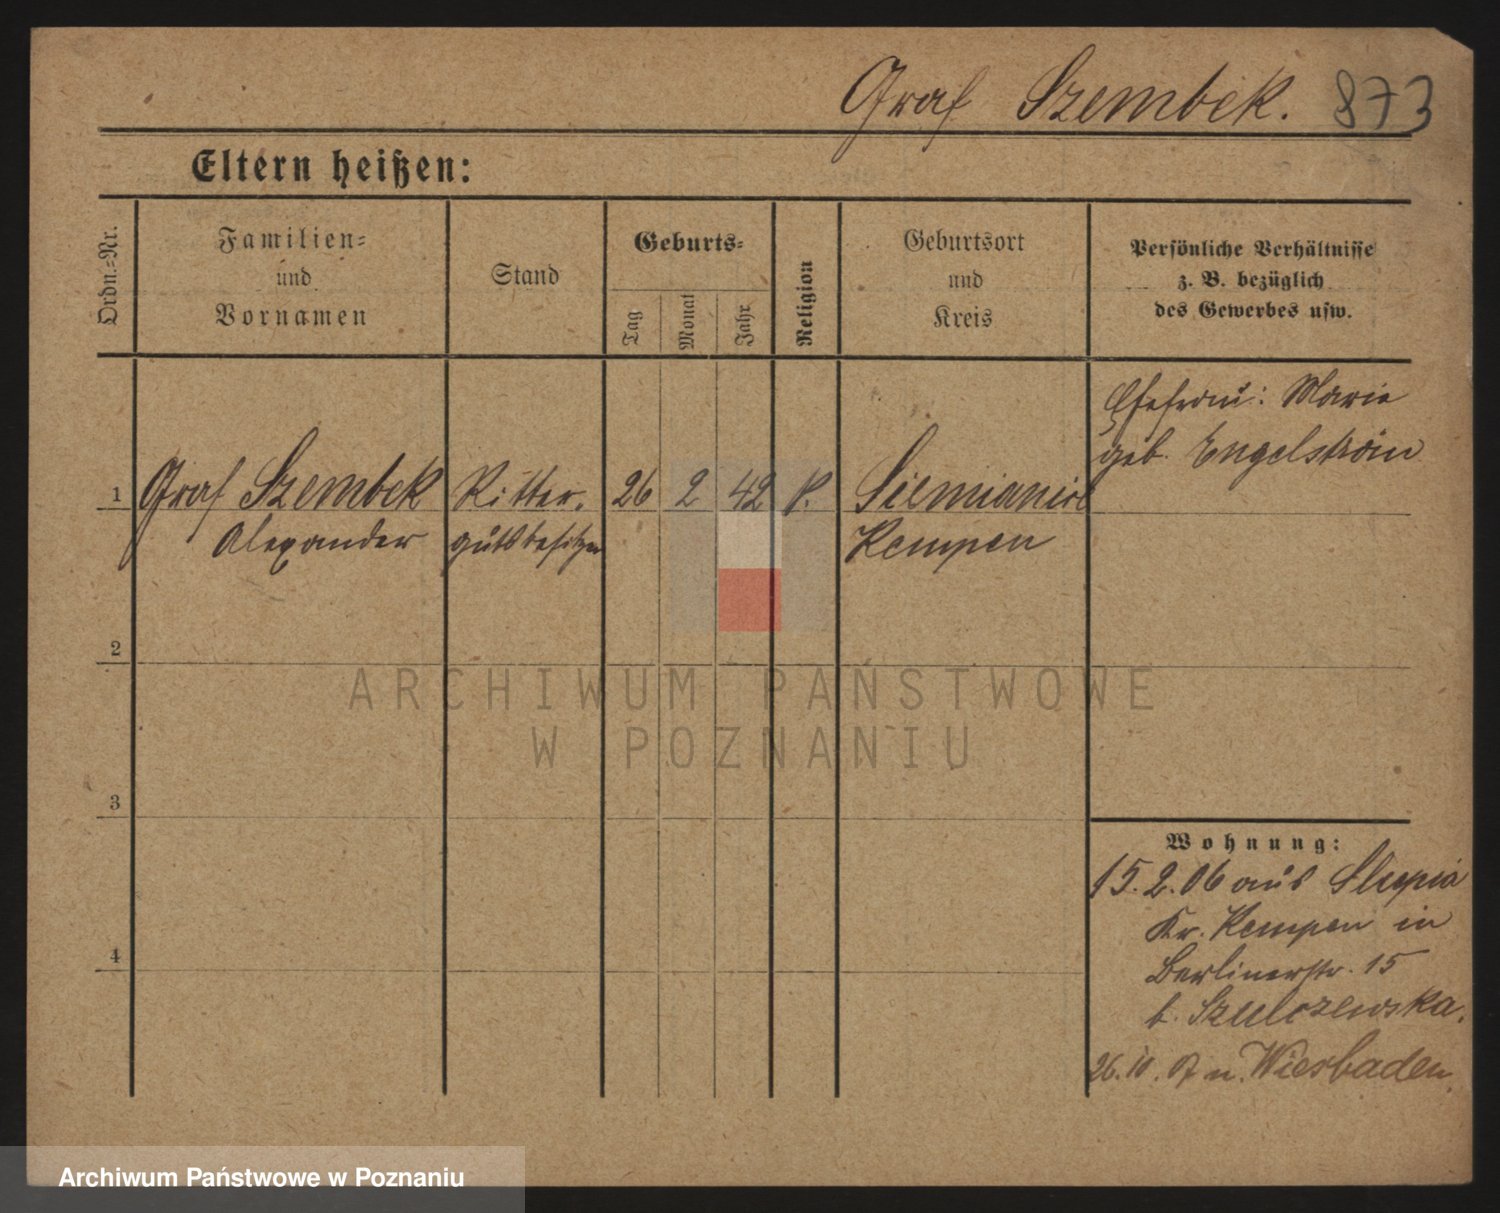 Graf Szembek. 873
Eltern heißen:
Ordn.-Nr.
Familien-
und
Vornamen
Stand
Geburts-
Tag
Monat
Jahr
Religion
Geburtsort
und
Kreis
Persönliche Verhältnisse
z. B. bezüglich
des Gewerbes usw.
Ehefrau: Marie
geb. Engelström
1 Graf Szembek Ritter- 26 2 42 k. Siemianice
Alexander gutsbesitzer Kempen
2
3
4
ARCHIWUM PAŃSTWOWE
W POZNANIU
Wohnung:
15.2.06 aus Slupia
Kr. Kempen in
Berlinerstr. 15
b. Szulczewska.
26.10. 07 n. Wiesbaden.
Archiwum Państwowe w Poznaniu